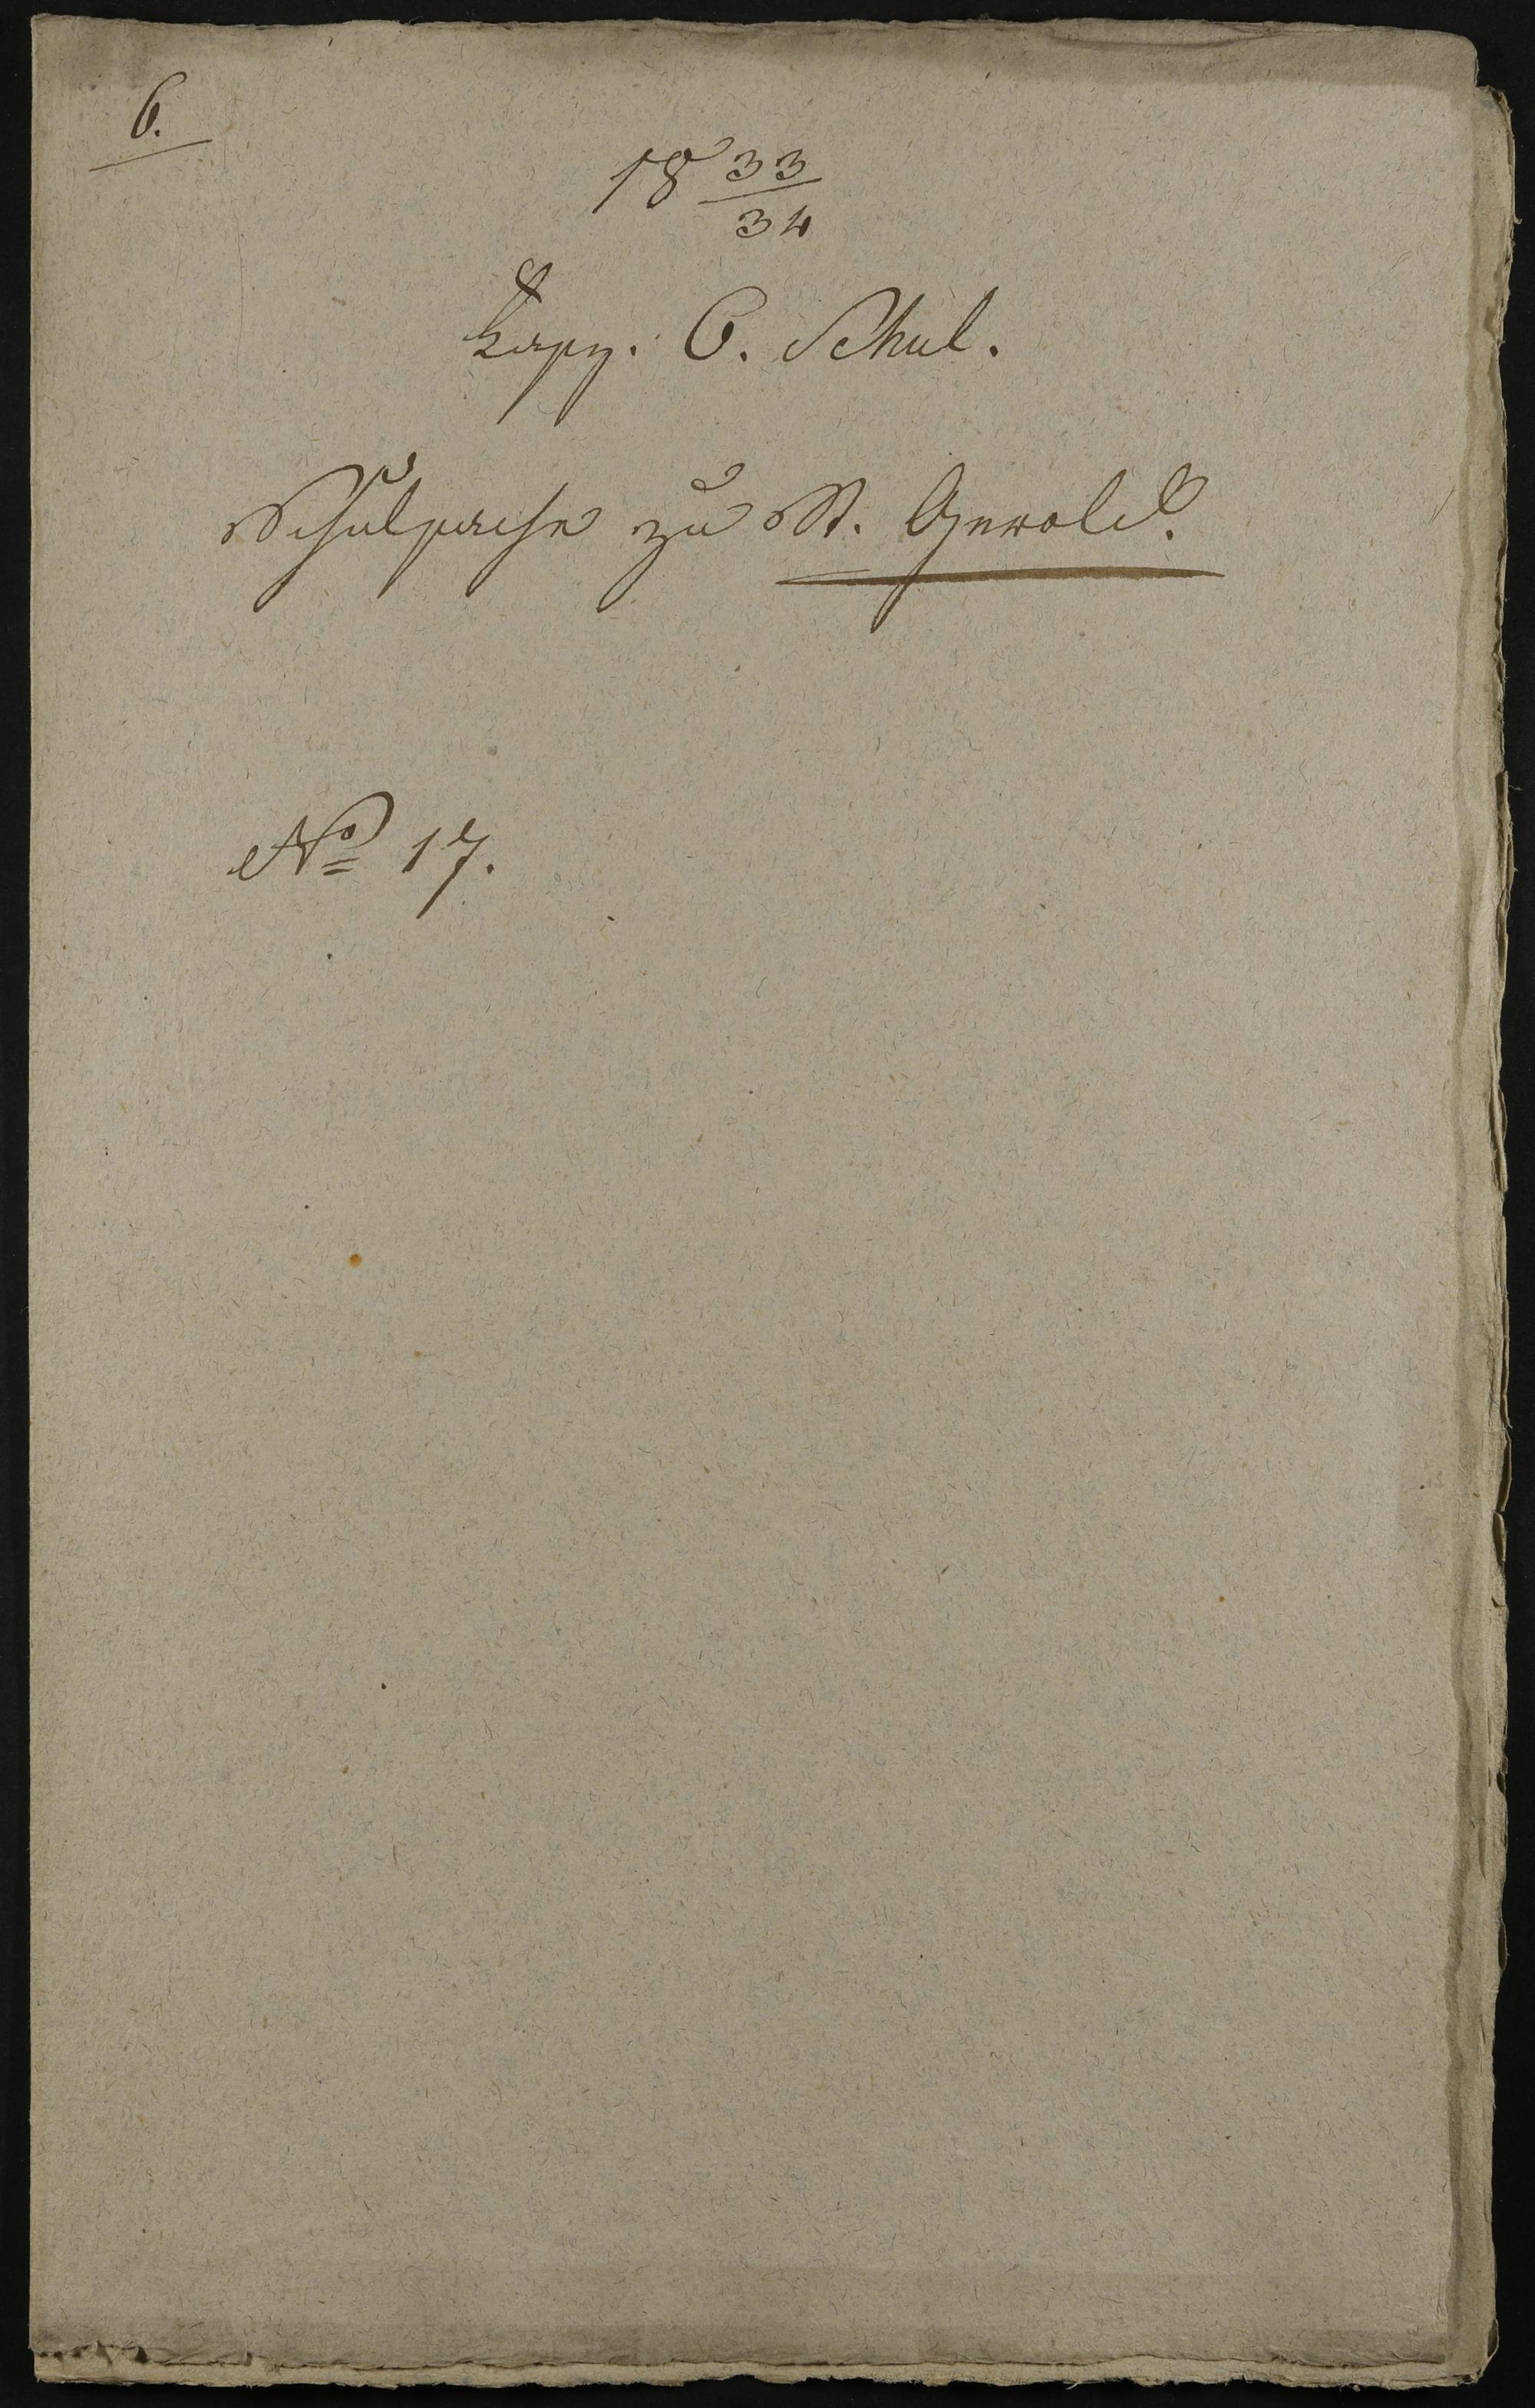 6.
18 33/34
Kapz. C. Schul.
Schulsache zu St. Gerold.
No 17.